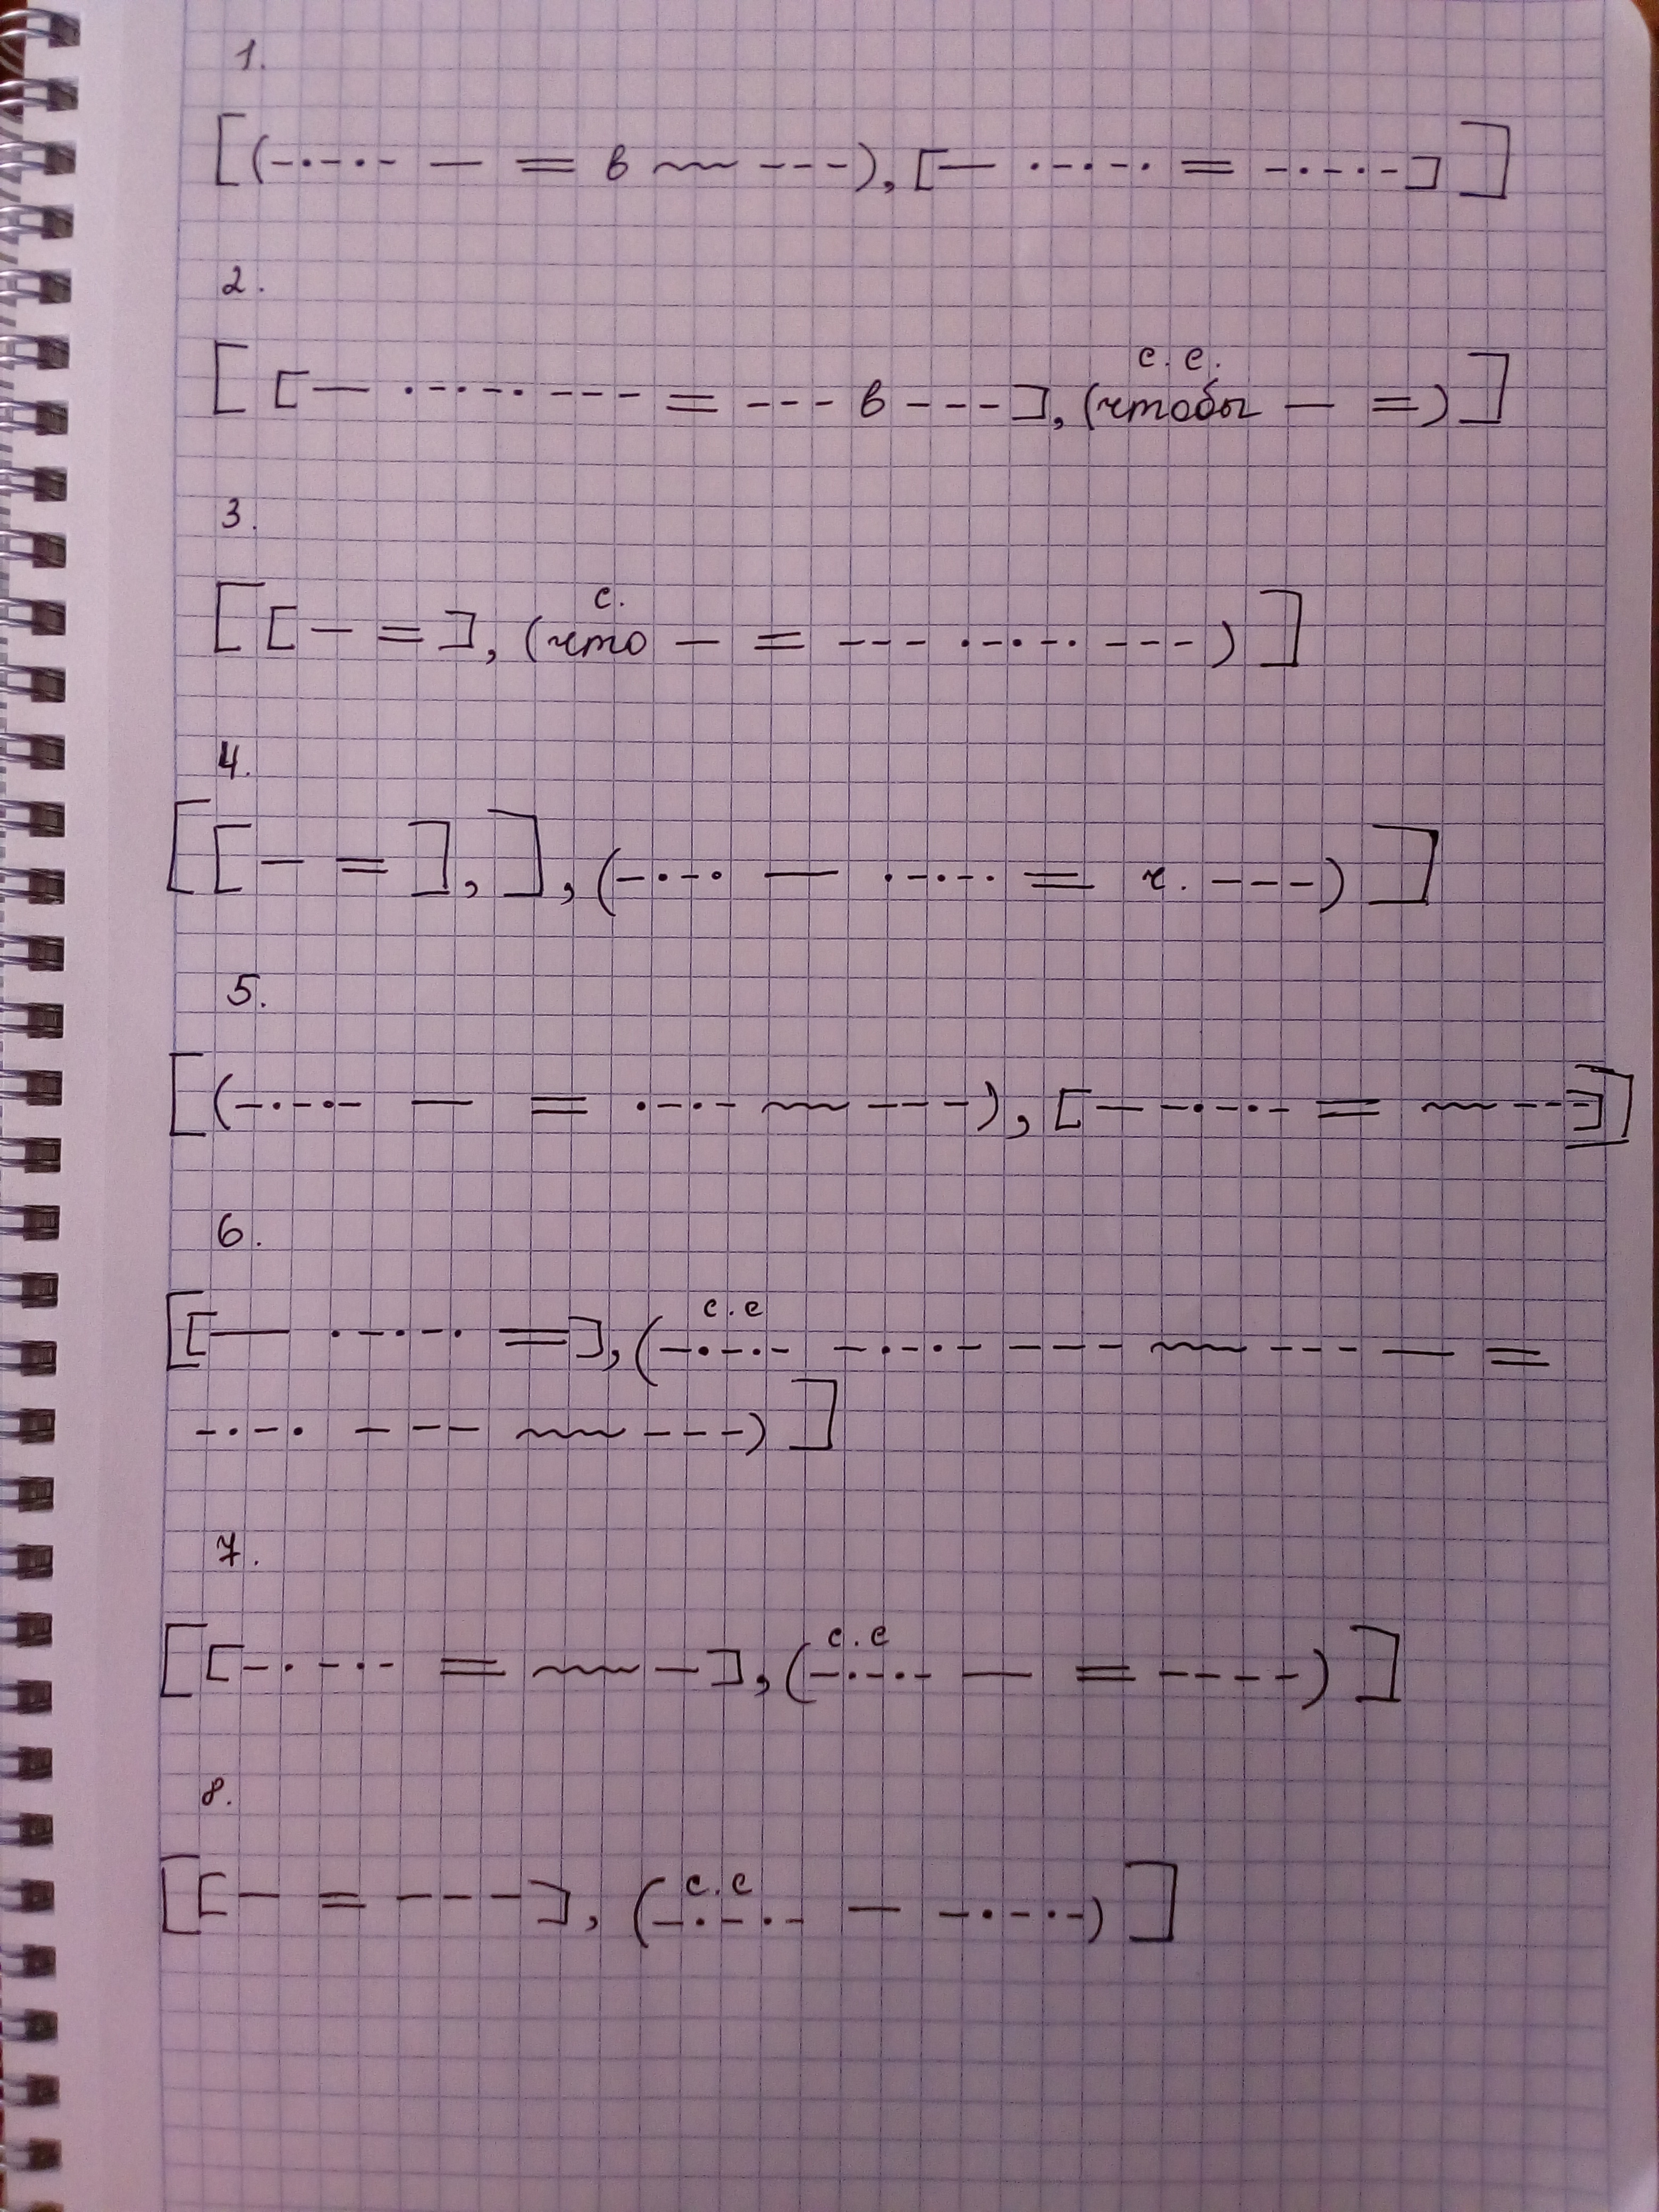 1.
[(-·-·- — = в ~~~ ---), [— ·-·-· = -·-·-]]
2.
с. с.
[[— ·-·-· --- = --- в ---], (чтобы — =)]
3.
с.
[[— =], (что — = --- ·-·-· ---)]
4.
[[— =], ], (-·-· — ·-·-· = ч. ---)]
5.
[(-·-·- — = ·-·- ~~~ ---), [— -·-·- = ~~~ ---]]
6.
с.с
[[— ·-·-· =], (-·-·- -·-·- --- ~~~ --- — =
-·-· --- ~~~ ---)]
7.
с.с
[[-·-·- = ~~~ —], (-·-·- — = ----)]
8.
с.с
[[— = ---], (-·-·- — -·-·-)]